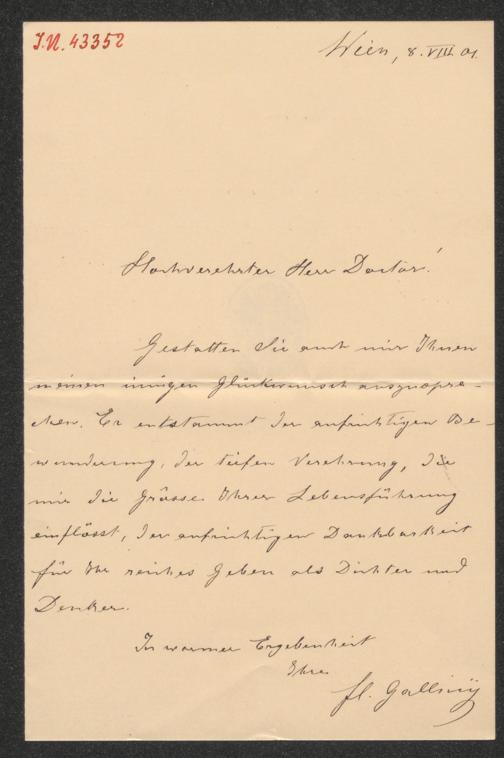 J.N. 43352
Wien, 8. VIII. 01.
Hochverehrter Herr Doctor!
Gestatten Sie auch mir Ihnen
meinen innigen Glückwunsch auszuspre-
chen. Er entstammt der aufrichtigen Be-
wunderung, der tiefen Verehrung, die
mir die Grösse Ihrer Lebensführung
einflösst, der aufrichtigen Dankbarkeit
für Ihr reiches Geben als Dichter und
Denker.
In warmer Ergebenheit
Ihre
fl. Galliny